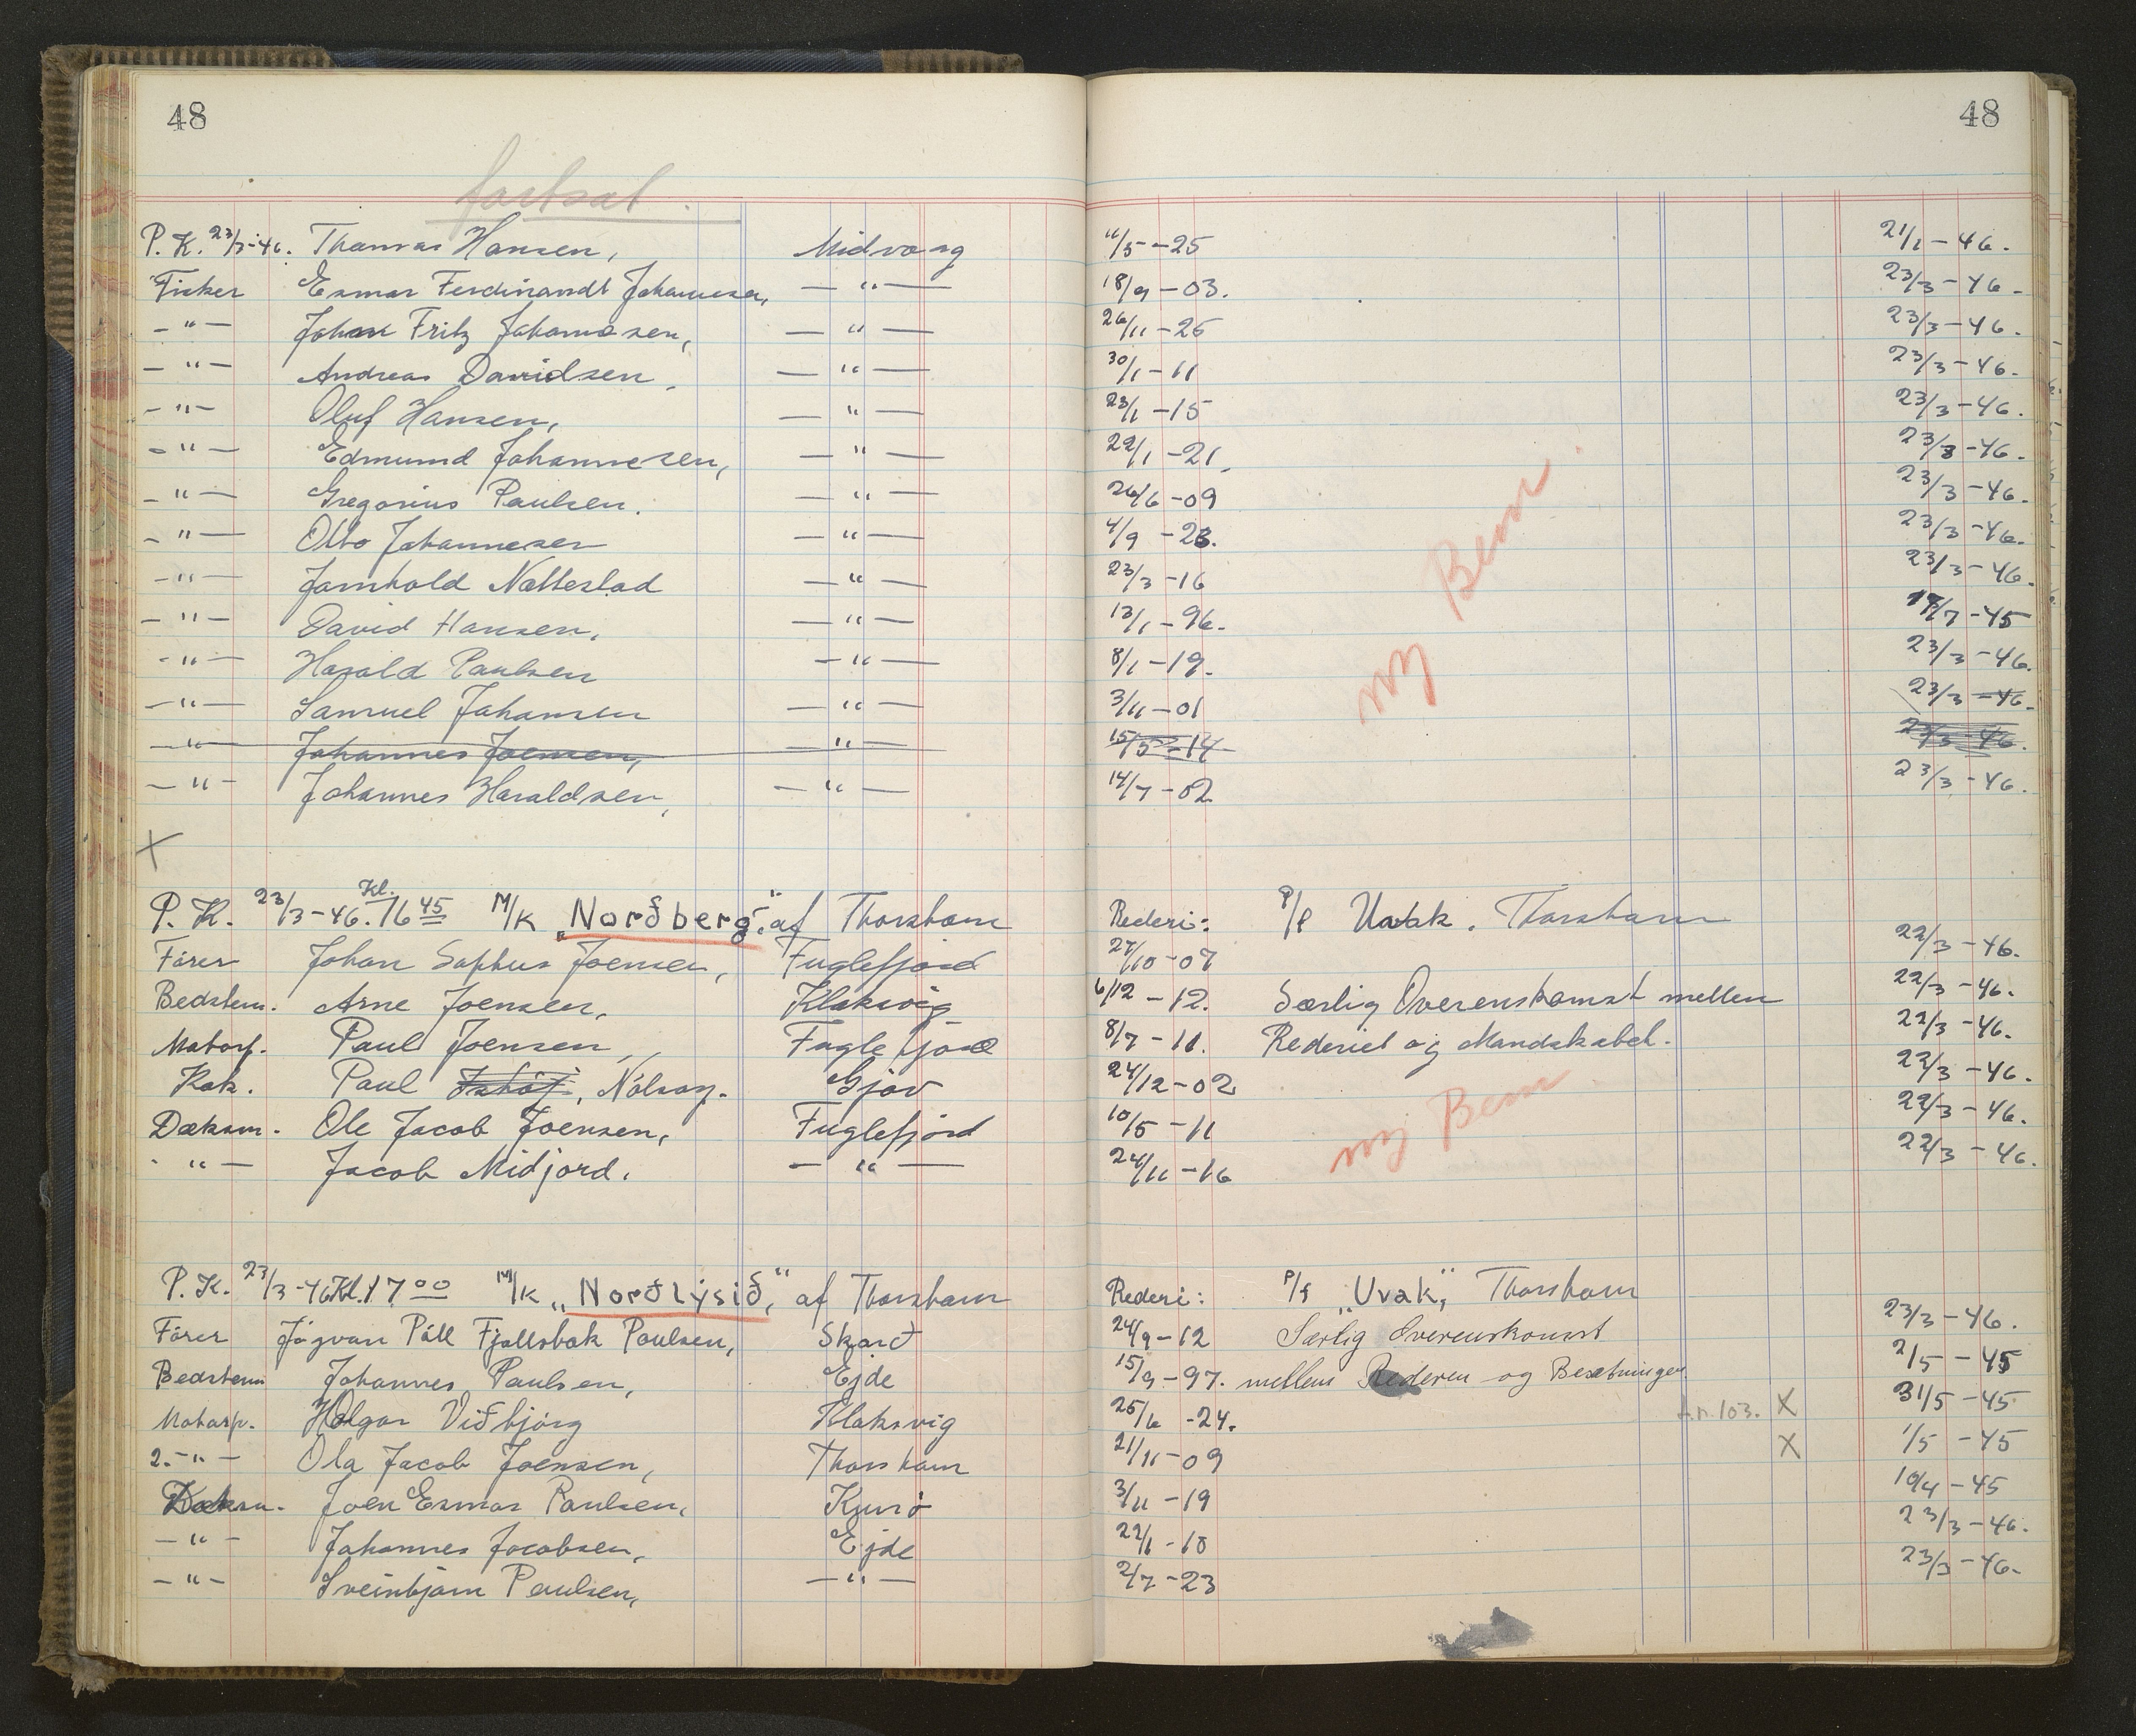 48 48
fortsat.
P. K. 23/3-46. Thomas Hansen, Midvaag /5-25 21/1-46.
Fisker Esmar Ferdinandt Johannesen, —"— 18/9-03. 23/3-46.
—"— Johan Fritz Johannesen, —"— 26/11-25 23/3-46.
—"— Andreas Davidsen, —"— 30/1-11 23/3-46.
—"— Oluf Hansen, —"— 23/1-15 23/3-46.
—"— Edmund Johannesen, —"— 22/1-21. 23/3-46.
—"— Gregorius Paulsen. —"— 26/6-09 23/3-46.
—"— Otto Johannesen —"— 4/9-23. 23/3-46.
—"— Jarnhold Nattestad —"— 23/3-16 23/3-46.
—"— David Hansen, —"— 13/1-96. /7-45
—"— Harald Paulsen —"— 8/1-19. 23/3-46.
—"— Samuel Johansen —"— 3/11-01 23/3-46.
—"— Johannes Joensen, —"— 15/5-14 23/3-46.
—"— Johannes Haraldsen, —"— 14/7-02 23/3-46.
ny Bem.
X
P. K. 23/3-46. Kl. 16 45 M/K „Norðberg" af Thorshavn Rederi: P/f Uvak. Thorshavn
Fører Johan Sophus Joensen, Fuglefjord 27/10-07 22/3-46.
Bedstem. Arne Joensen, Klaksvig 6/12-12. Særlig Overenskomst mellem 22/3-46.
Motorp. Paul Joensen, Fuglefjord 8/7-11. Rederiet og Mandskabet. 22/3-46.
Kok. Paul Nólsoy. Gjov 24/12-02 22/3-46.
Dæksm. Ole Jacob Joensen, Fuglefjord 10/5-11 22/3-46.
—"— Jacob Midjord. —"— 24/11-16 22/3-46.
ny Bem
P. K. 23/3-46 Kl. 17 00 M/K „Norðlýsið," af Thorshavn Rederi: P/f „Uvak", Thorshavn
Fører Jógvan Páll Fjallsbak Poulsen, Skarð 24/9-12 Særlig Overenskomst 23/3-46.
Bedstem Johannes Paulsen, Ejde 15/9-97. mellem Rederen og Besætningen 2/5-45
Motorp. Holgar Viðbjørg Klaksvig 25/6-24. 103. X 31/5-45
2.—"— Ola Jacob Joensen, Thorshavn 21/11-09 X 1/5-45
Dæksm. Joen Esmar Paulsen, Kunø 3/11-19 10/4-45
—"— Johannes Jacobsen, Ejde 22/1-10 23/3-46.
—"— Sveinbjørn Paulsen, —"— 2/7-23 23/3-46.